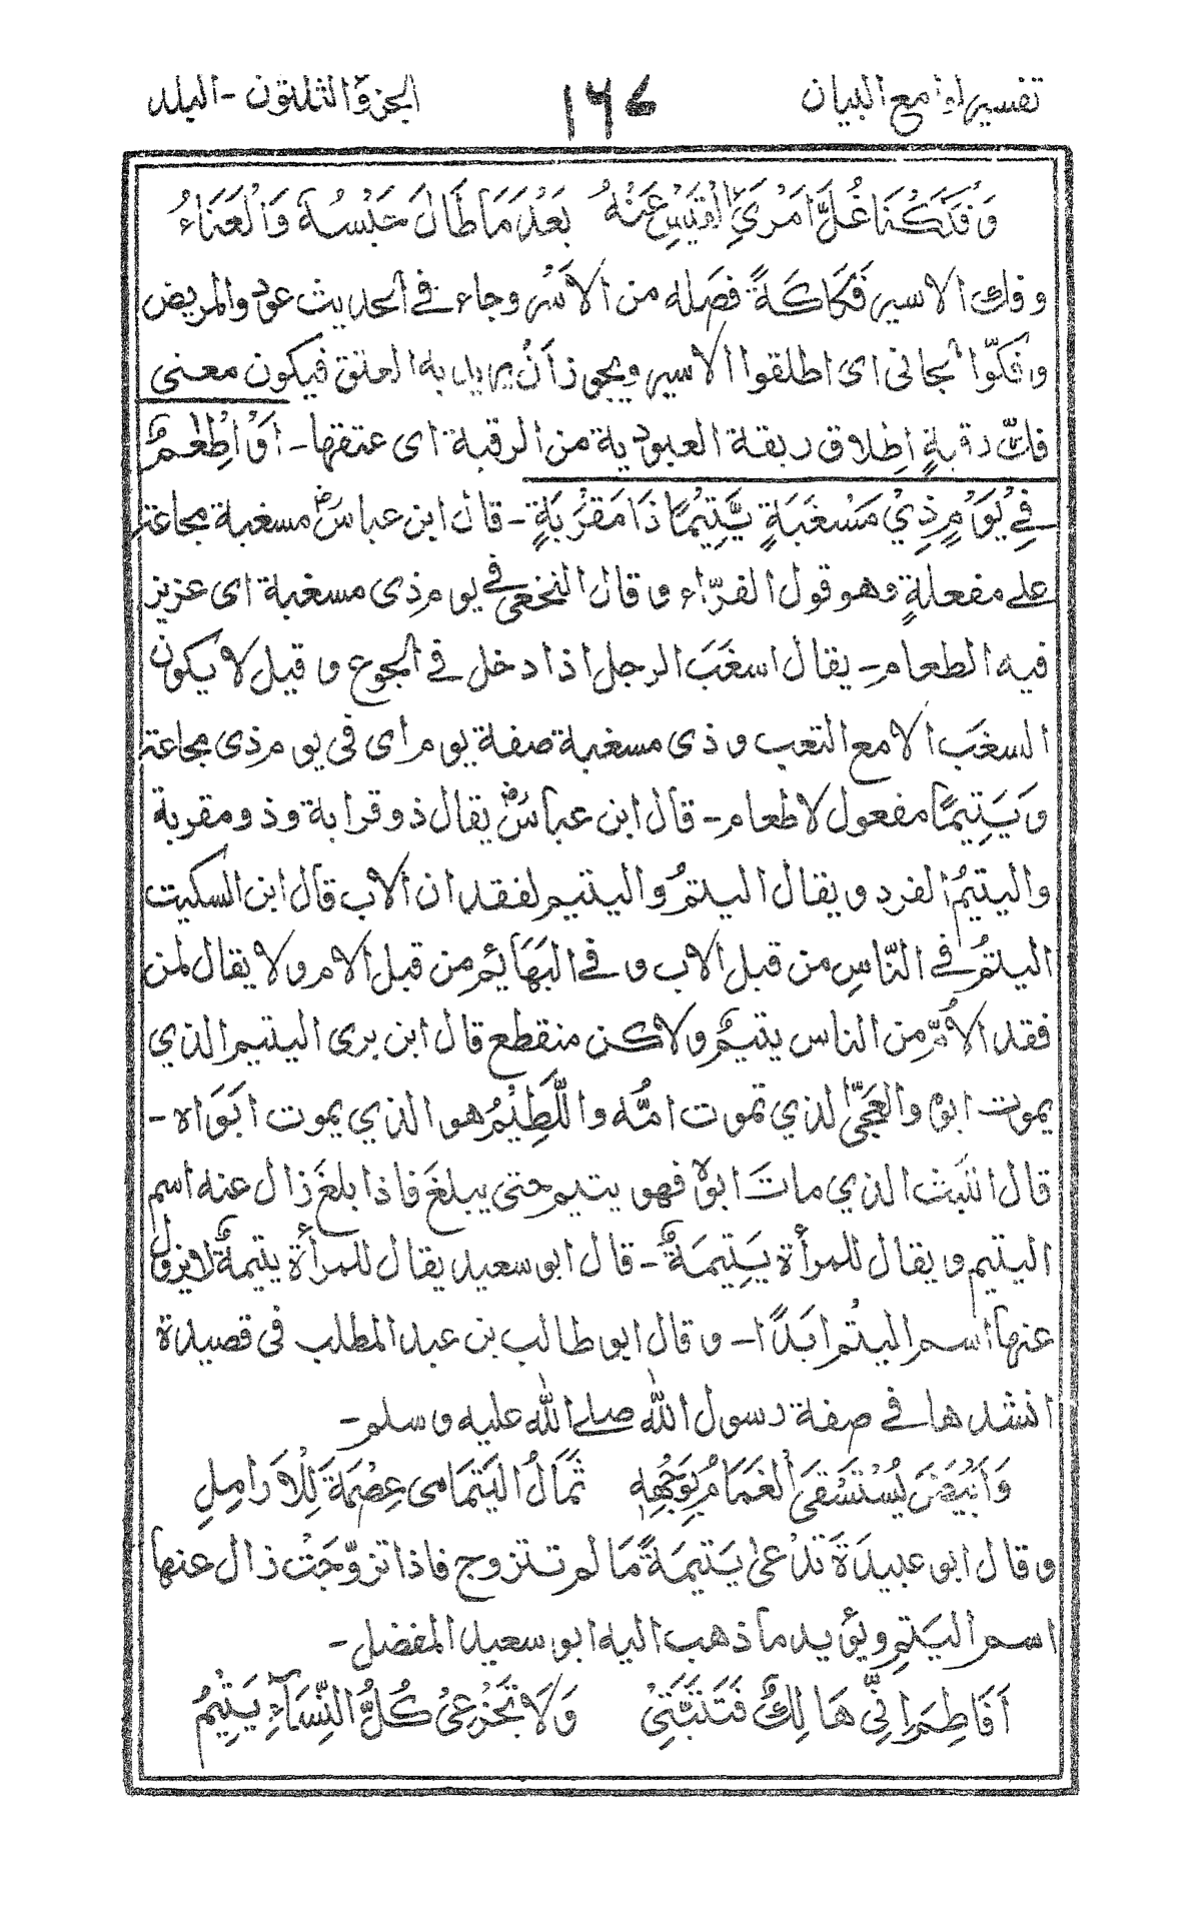 تفسير لوامع البيان ١٦٤ الجزء الثلثون - البلد
وَفَكَكْنَا غُلَّ امْرَئِ الْقَيْسِ عَنْهُ بَعْدَ مَا طَالَ حَبْسُهُ وَالْعَنَاءُ
وفك الاسير فَكَاكَةً فصَله من الاَسْر وجاء فى الحديث عودوالمريض
وافكّوا الجانى اى اطلقوا الاسير ويجوز اَنْ يريد به العتق فيكون معنى
فكّ رقبةٍ اِطلاق ربقة العبودية من الرقبة اى عتقها - اَوْ اِطْعٰمٌ
فِيْ يَوْمٍ ذِيْ مَسْغَبَةٍ يَّتِيْمًا ذَا مَقْرَبَةٍ - قال ابن عباسؓ مسغبة مجاعة
على مفعلةٍ وهو قول الفرّاء و قال النخعى فى يوم ذى مسغبة اى عزيز
فيه الطعام - يقال اسغَبَ الرجل اذا دخل فى الجوع و قيل لا يكون
السغَب الا مع التعب و ذى مسغبة صفة يوم اى فى يوم ذى مجاعة
وَيَتِيمًا مفعول لاطعام - قال ابن عباسؓ يقال ذو قرابة و ذو مقربة
واليتيمُ الفرد و يقال اليتمُ واليتيم لفقدان الاب قال ابن السكيت
اليتمُ فى النّاسِ من قبل الاب و فى البَهَائم من قبل الام ولا يقال لمن
فقد الاُمّ من الناس يتيمٌ ولاكن منقطع قال ابن برى اليتيم الذي
يموت ابوه والعَجِىّ الذي تموت امُّه واللَّطِيْمُ هو الذي يموت ابَوَاه -
قال الليث الذي ماتَ ابوهٗ فهو يتيم حتى يبلغَ فاذا بلغَ زال عنه اسم
اليتيم و يقال للمرأة يَتِيمَةٌ - قال ابو سعيد يقال للمرأة يتيمةٌ لا يزول
عنها اسم اليتُم ابَدًا - و قال ابو طالب بن عبد المطلب فى قصيدة
انشدها فى صفة رسول الله صلى الله عليه و سلم -
وَاَبْيَضَ يُسْتَسْقَى الْغَمَامُ بِوَجْهِهٖ ثُمَالُ الْيَتَامٰى عِصْمَةَ لِلْاَرَامِلِ
و قال ابو عبيدَة تدْعىٰ يَتيمَةً مَا لم تتزوج فاذا تزوّجَتْ زال عنها
اسم اليَتِم و يؤيد ما ذهب اليه ابو سعيد المفضل -
اَفَاطِمَ اِنِّى هَالِكٌ فَتَثَبَّتِىْ وَلَا تَجْزَعِىْ كُلُّ النِّسَآءِ يَتِيْمُ